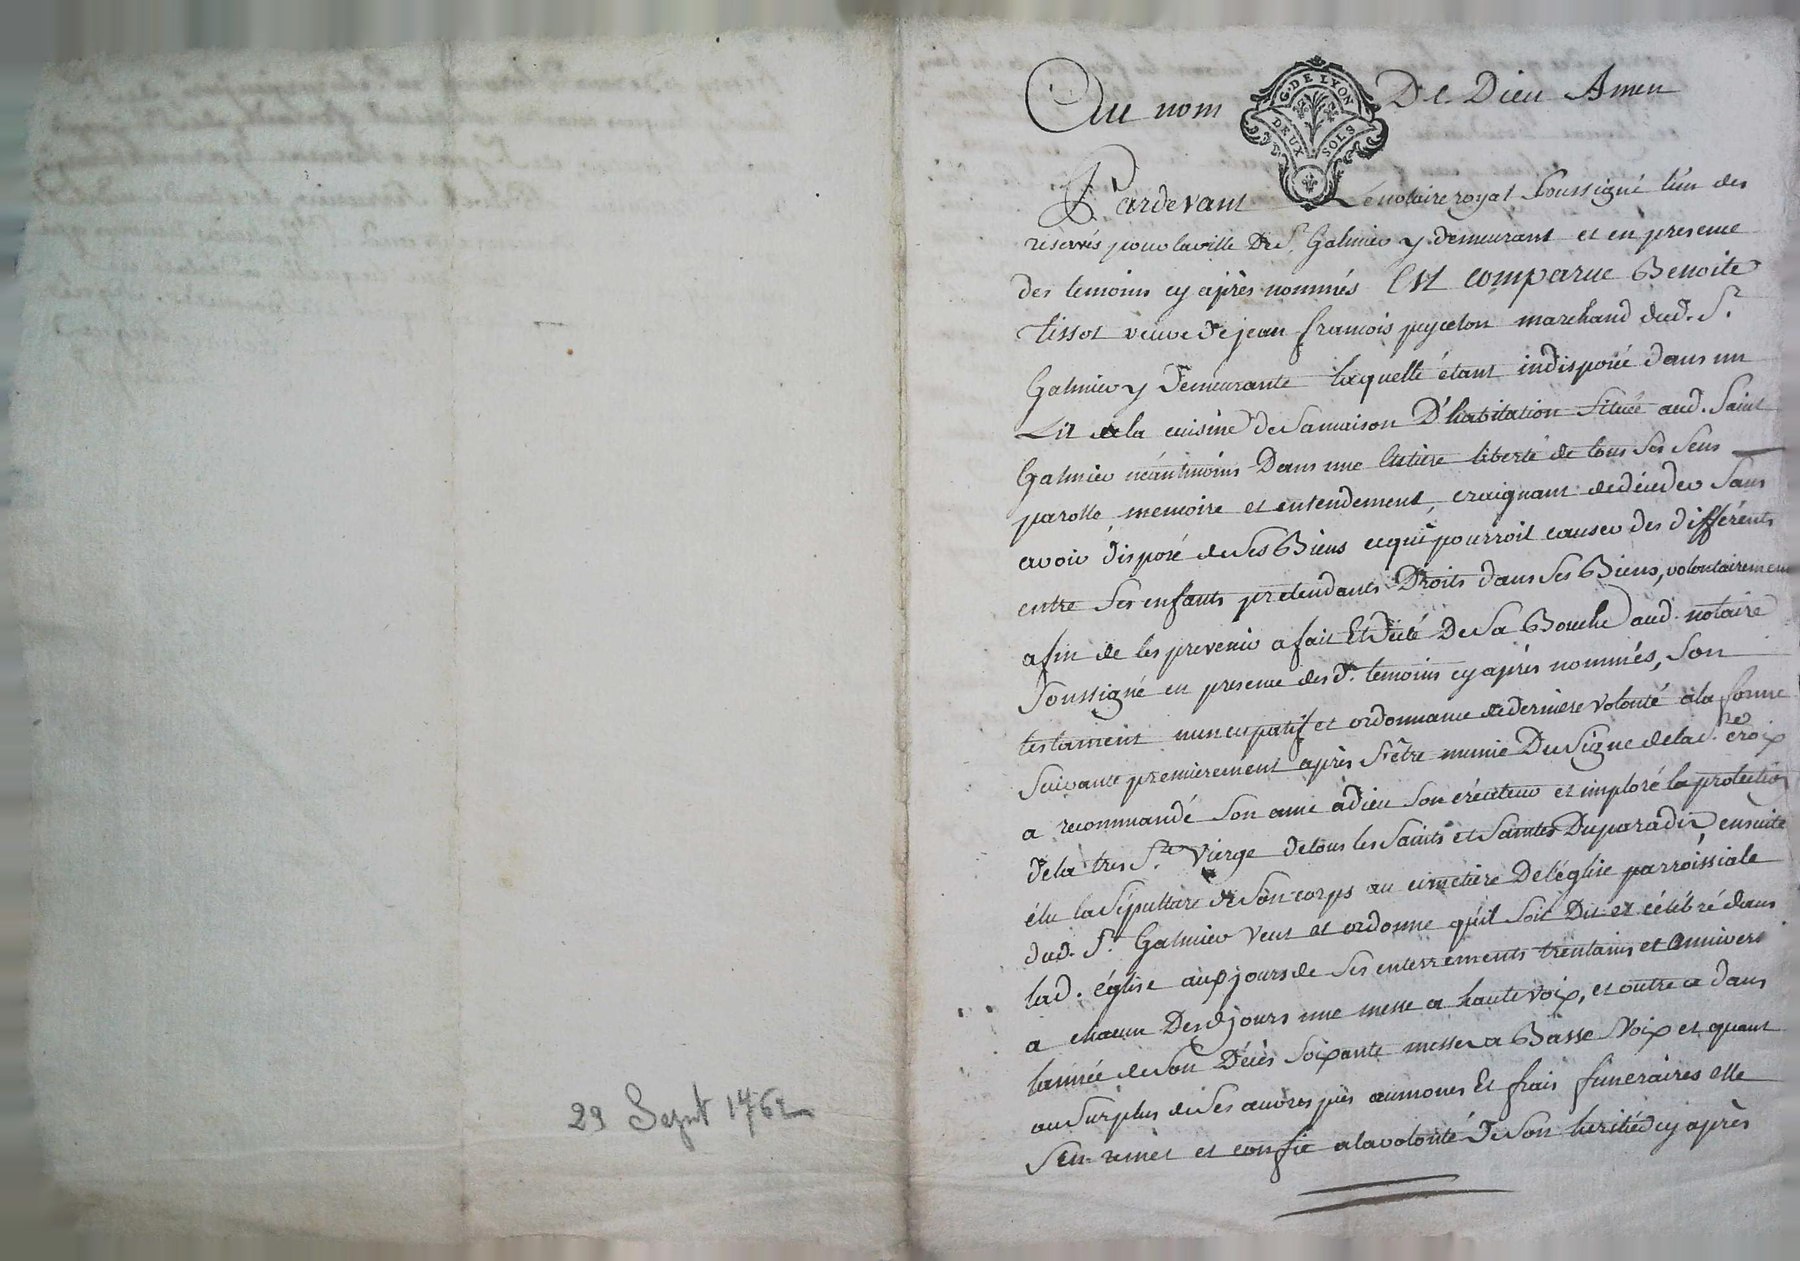 29 Sept 1762
Au nom De Dieu Amen
G. DE LYON
DEUX SOLS
Pardevant Le notaire royal Soussigné l'un des
réservés pour la ville De St. Galmier y demeurant et en presence
des temoins cy après nommés Est comparue Benoite
tissot veuve De jean françois peycelon marchand dud. St.
Galmier y Demeurante laquelle étant indisposée dans un
Lit a la cuisine De Sa maison D'habitation Située aud. Saint
Galmier néantmoins Dans une Entiere liberté de tous Ses Sens
parolle, memoire et entendement, craignant de décéder Sans
avoir disposé de Ses Biens ce qui pourroit causer des différents
entre Ses enfants prétendants Droits dans Ses Biens, volontairement
afin de les prevenir a fait Et Dicté De Sa Bouche aud. notaire
Soussigné en presence des d. temoins cy après nommés, Son
testament nuncupatif et ordonnance de derniere volonté a la forme
Suivante premierement après S'être munie Du Signe de la Ste. croix
a recommandé Son ame à dieu Son créateur et imploré la protection
de la tres Ste. Vierge de tous les Saints et Saintes Du paradis, ensuite
élu la Sépulture de Son corps au cimetière De l'église parroissiale
dud. St. Galmier Veut et ordonne qu'il Soit Dit et célébré dans
lad. église aux jours de Ses enterrements trentains et annivers
a chacun Desd. jours une messe a haute voix, et outre ce dans
lannée de Son Décès Soixante messes a Basse Voix et quant
au Surplus de Ses œuvres pies aumones Et frais funeraires elle
S'en remet et confie a la volonté De Son heritié cy après